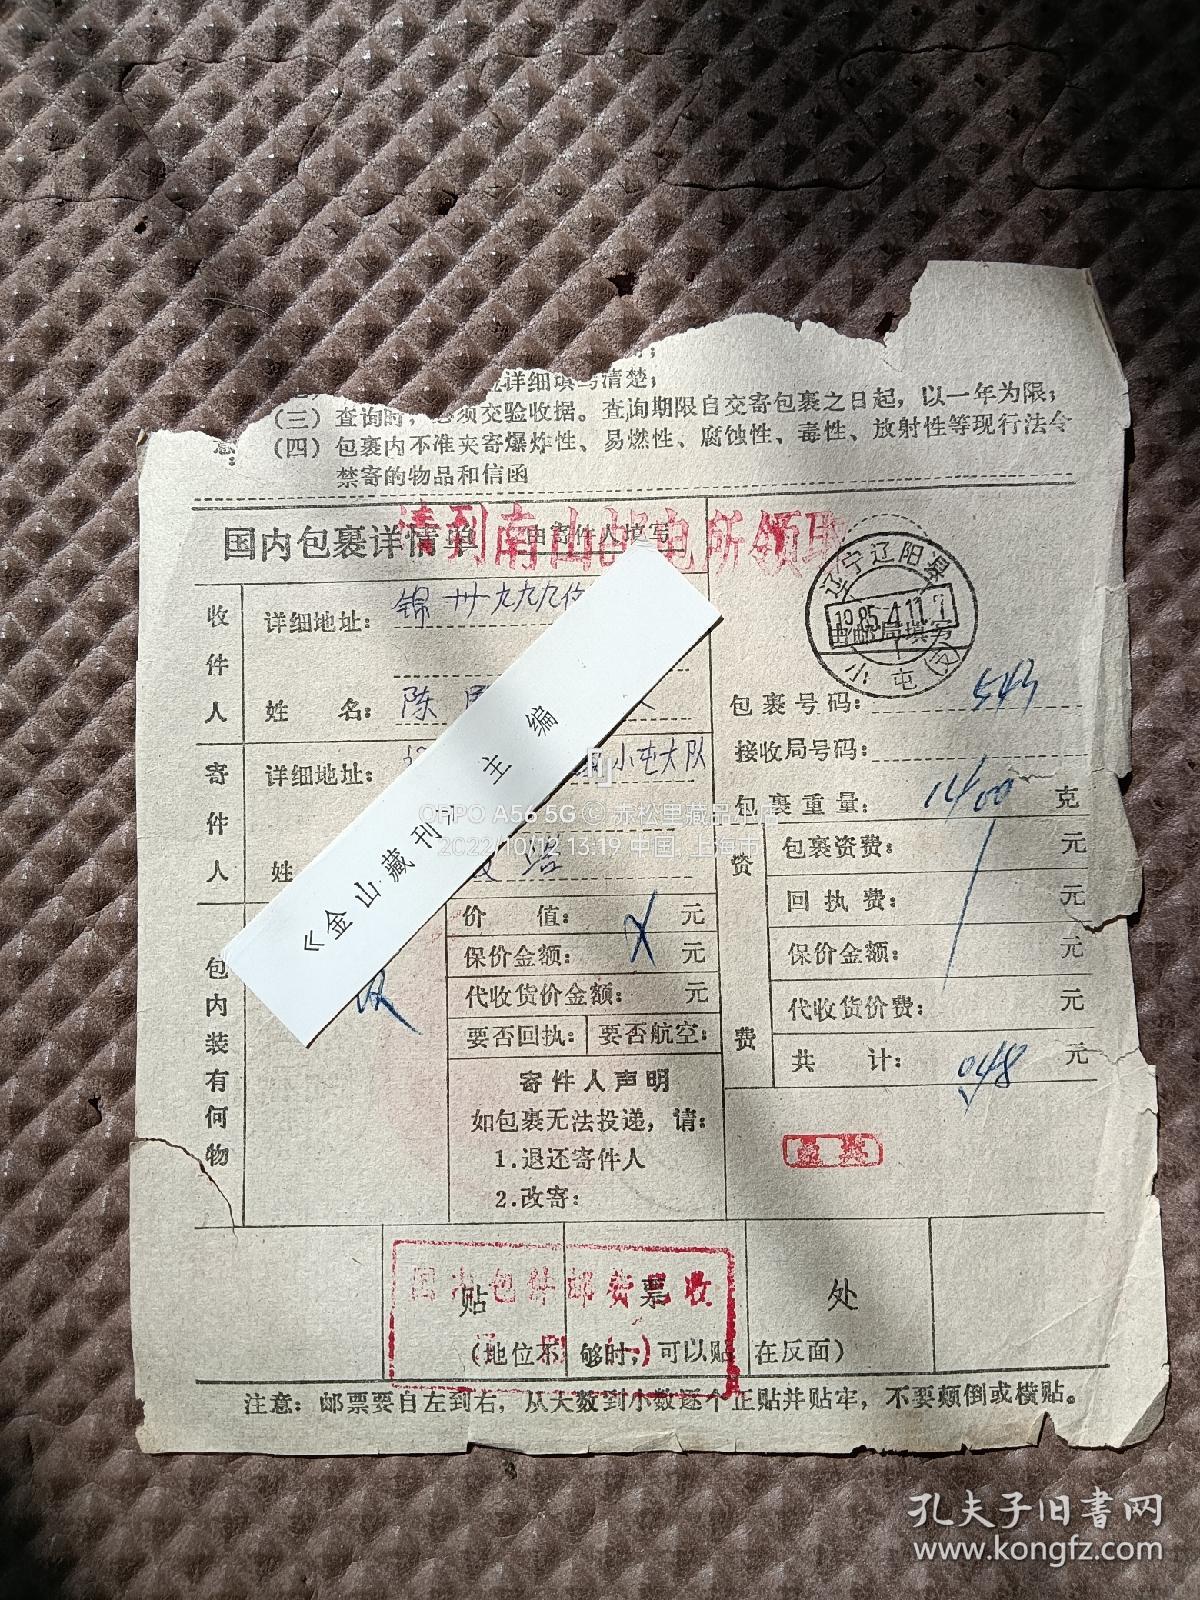 详细填写清楚；
（三）查询时，必须交验收据。查询期限自交寄包裹之日起，以一年为限；
意：（四）包裹内不准夹寄爆炸性、易燃性、腐蚀性、毒性、放射性等现行法令
禁寄的物品和信函
请到南山邮电所领取
国内包裹详情单 由寄件人填写
辽宁辽阳县
1985.4.11.
由邮局填写
小屯
收件人
详细地址：锦州九九九
姓名：陈
寄件人
详细地址：小屯大队
姓
包裹号码：543
接收局号码：
包裹重量：1400克
资费
包裹资费：元
回执费：元
保价金额：元
代收货价费：元
共计：0.48元
包内装有何物
价值：元
保价金额：元
代收货价金额：元
要否回执： 要否航空：
寄件人声明
如包裹无法投递，请：
1.退还寄件人
2.改寄：
《金山藏刊》主编
OPPO A56 5G © 赤松里藏品小店
2022/10/12 13:19 中国, 上海市
国内包件邮费已收
贴票处
（地位不够时，可以贴在反面）
注意：邮票要自左到右，从大数到小数逐个正贴并贴牢，不要颠倒或横贴。
孔夫子旧书网
www.kongfz.com